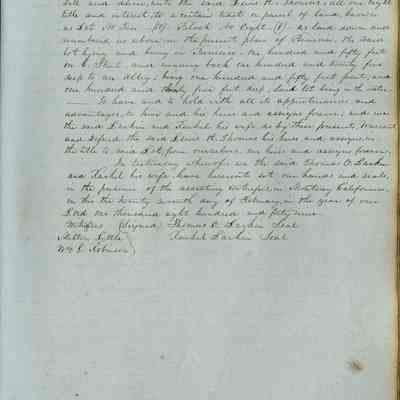 sell and alien, unto the said Lewis M. Thomas, all our right
title and interest, to a certain tract or parcel of land, known
as Lot No Ten (10) Block No Eight (8) as laid down and
numbered as above on the present plan of Benicia, the said
Lot lying and being in Benicia one hundred and fifty feet
on C Street and running back one hundred and twenty five
deep to an Alley; being one hundred and fifty feet front, and
one hundred and twenty five feet deep, said lot being in the
To have and to hold with all its appurtenances and
advantages to him and his heirs and assigns forever, and we
the said Larkin and Rachel his wife do by these presents, Warrant
and Defend the said Lewis M. Thomas his heirs and assigns, in
the title to said Lot, from ourselves, our heirs and assigns forever,
In testimony whereof we the said Thomas O. Larkin
and Rachel his wife, have hereunto set our hands and seals,
in the presence of the attesting witnesses, in Monterey California
on this the twenty seventh day of February, in the year of our
Lord one thousand eight hundred and forty nine
Witnesses (Signed) Thomas O. Larkin Seal
Milton Little Rachel Larkin Seal
Wm E. Robinson